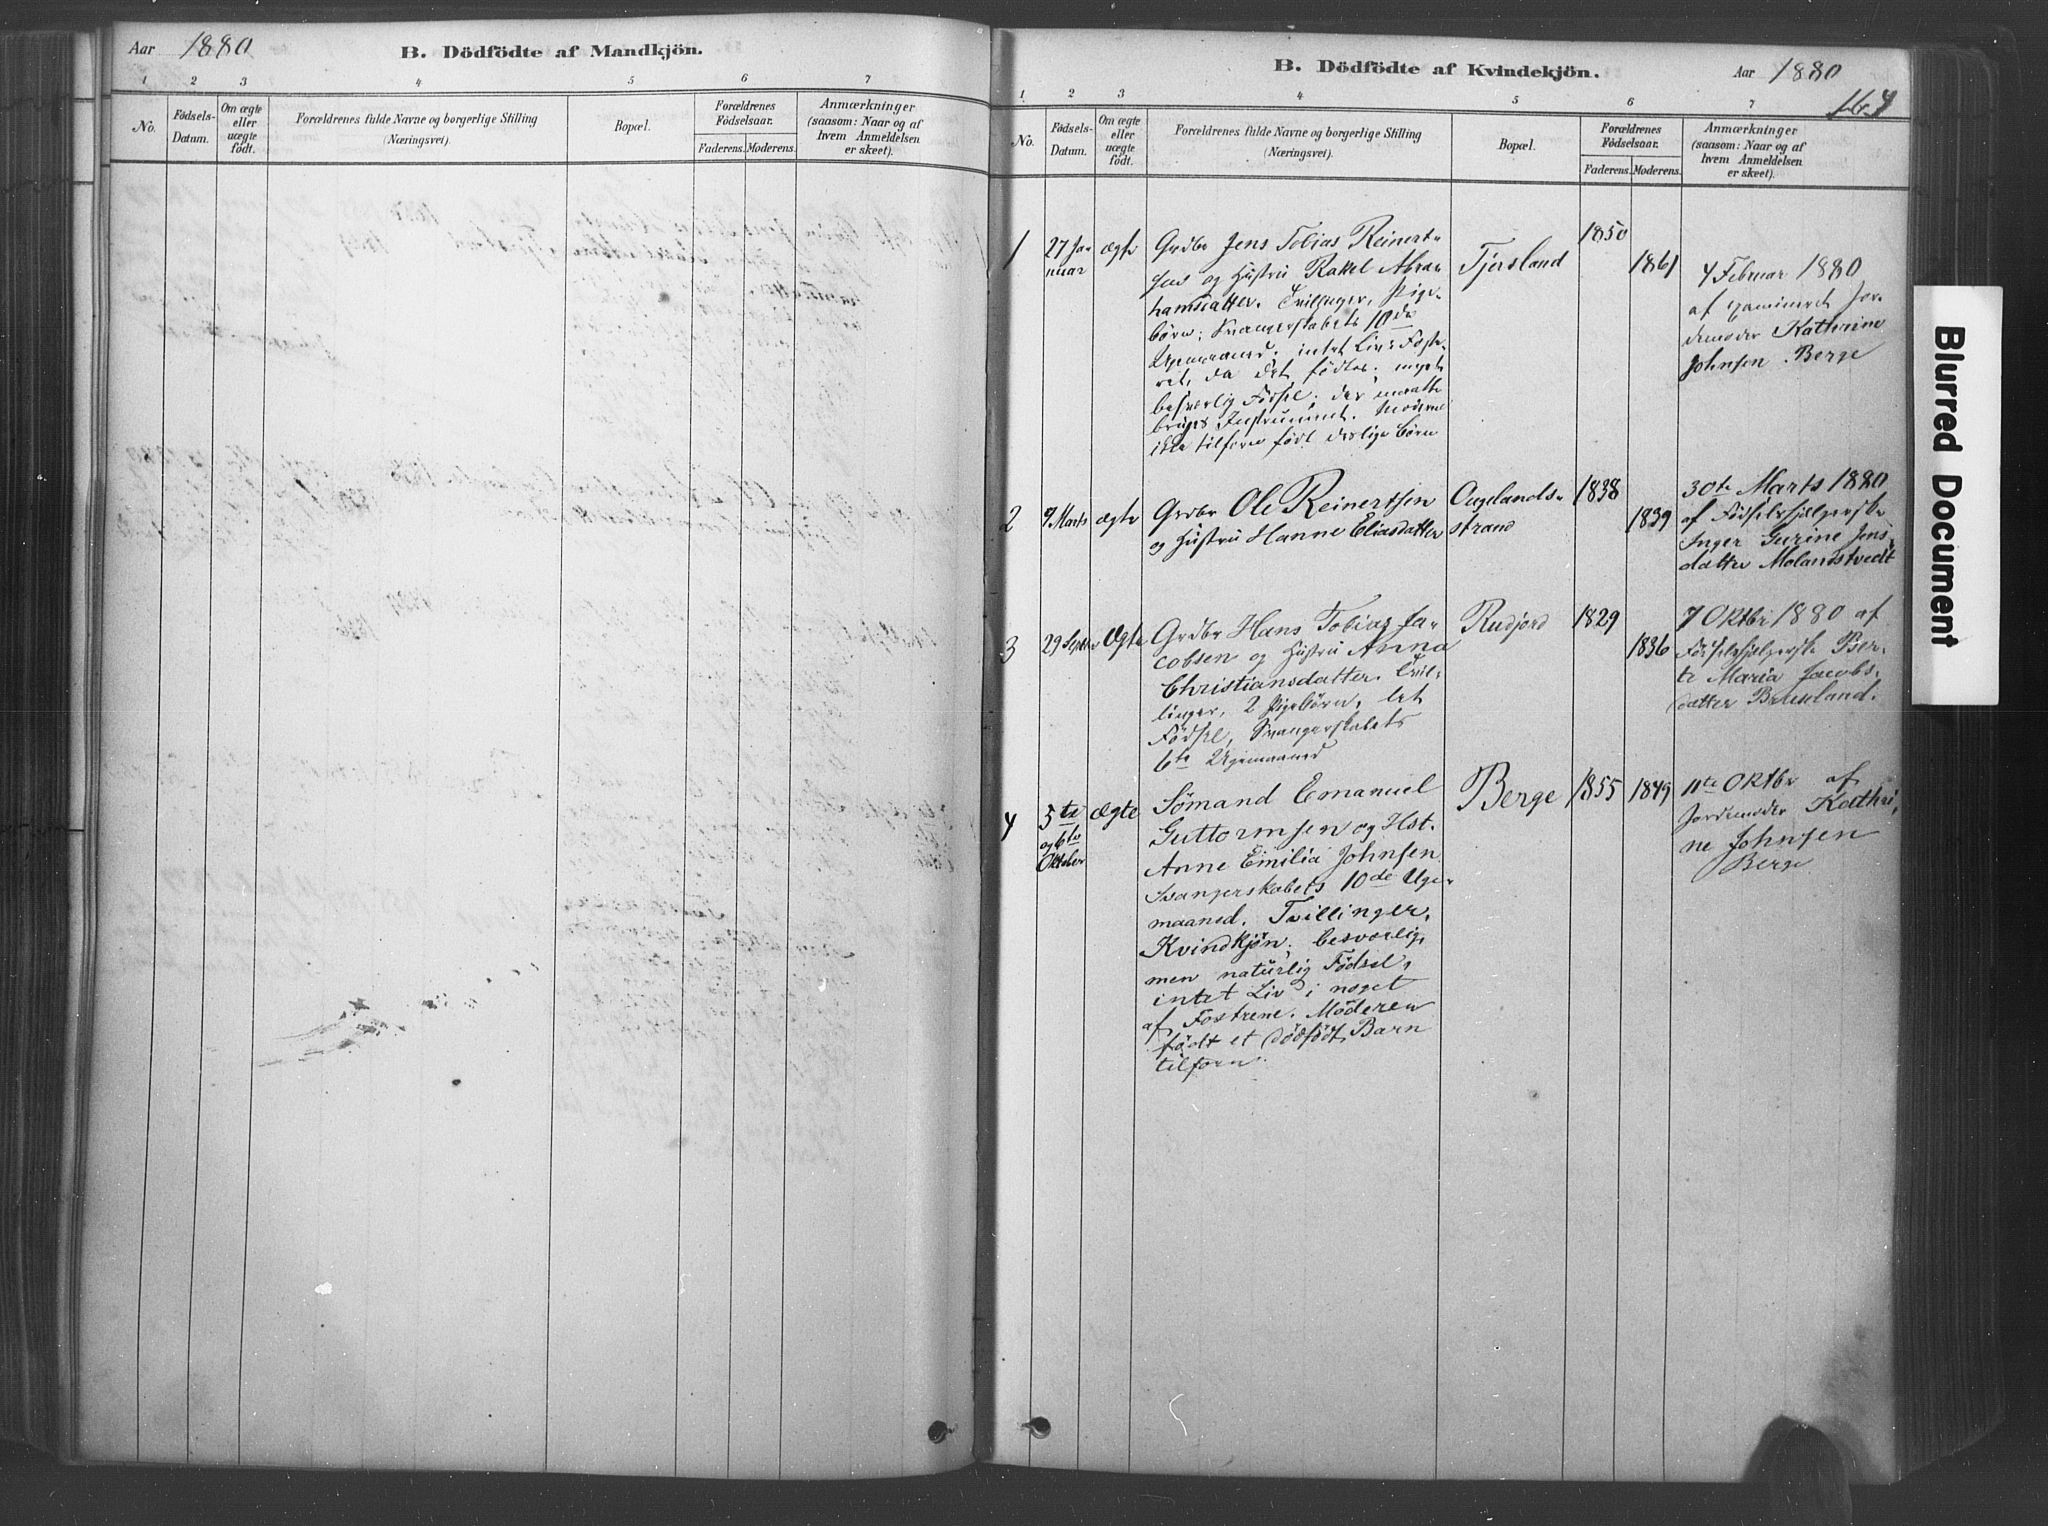 Aar 1880
B. Dödfödte af Mandkjön.
1 2 3 4 5 6 7
No.
Födsels-
Datum.
Om ægte
eller
uægte
födt.
Forældrenes fulde Navne og borgerlige Stilling
(Næringsvei).
Bopæl.
Forældrenes
Födselsaar.
Faderens. Moderens.
Anmærkninger
(saasom: Naar og af
hvem Anmeldelsen
er skeet).
B. Dödfödte af Kvindekjön.
Aar 1880
164
1 2 3 4 5 6 7
No.
Födsels-
Datum.
Om ægte
eller
uægte
födt.
Forældrenes fulde Navne og borgerlige Stilling
(Næringsvei).
Bopæl.
Forældrenes
Födselsaar.
Faderens. Moderens.
Anmærkninger
(saasom: Naar og af
hvem Anmeldelsen
er skeet).
1
27 Ja-
nuar
ægte
Grdbr Jens Tobias Reinert-
sen og Hustru Rakel Abra-
hamsdatter. Tvillinger, Pige-
börn; Svangerskabets 10de
Ugemaaned. intet Liv i Foste-
ret, da det födtes; meget
besværlig Födsel; der maatte
bruges Instrument. Moderen
ikke tilforn födt deslige börn
Tjersland
1850
1861
4 Februar 1880
af examineret Jor-
demoder Kathrine
Johnsen Berge
2
9 Marts
ægte
Grdbr Ole Reinertsen
og Hustru Hanne Eliasdatter
Augelands-
strand
1838
1839
30te Marts 1880
af Födselshjælperske
Inger Gurine Jens-
datter Molandstvedt
3
29 Septbr
Ægte
Grdbr Hans Tobias Ja-
cobsen og Hustru Anna
Christiansdatter. Tvil-
linger, 2 Pigebörn, let
Födsel, Svangerskabets
6te Ugemaaned
Rudjord
1829
1836
7 Oktbr 1880 af
Födselshjælperske Ber-
te Maria Jacobs-
datter Briseland.
4
5te
og 6te
Oktober
Ægte
Sömand Emanuel
Guttormsen og Hst.
Anne Emilia Johnsen
Svangerskabets 10de Uge-
maaned. Tvillinger,
Kvindkjön; besværlig,
men naturlig Födsel,
intet Liv i noget
af Fostrene. Moderen
födt et dödfödt Barn
tilforn.
Berge
1855
1849
11te Oktbr af
Jordemoder Kathri-
ne Johnsen
Berge
Blurred Document